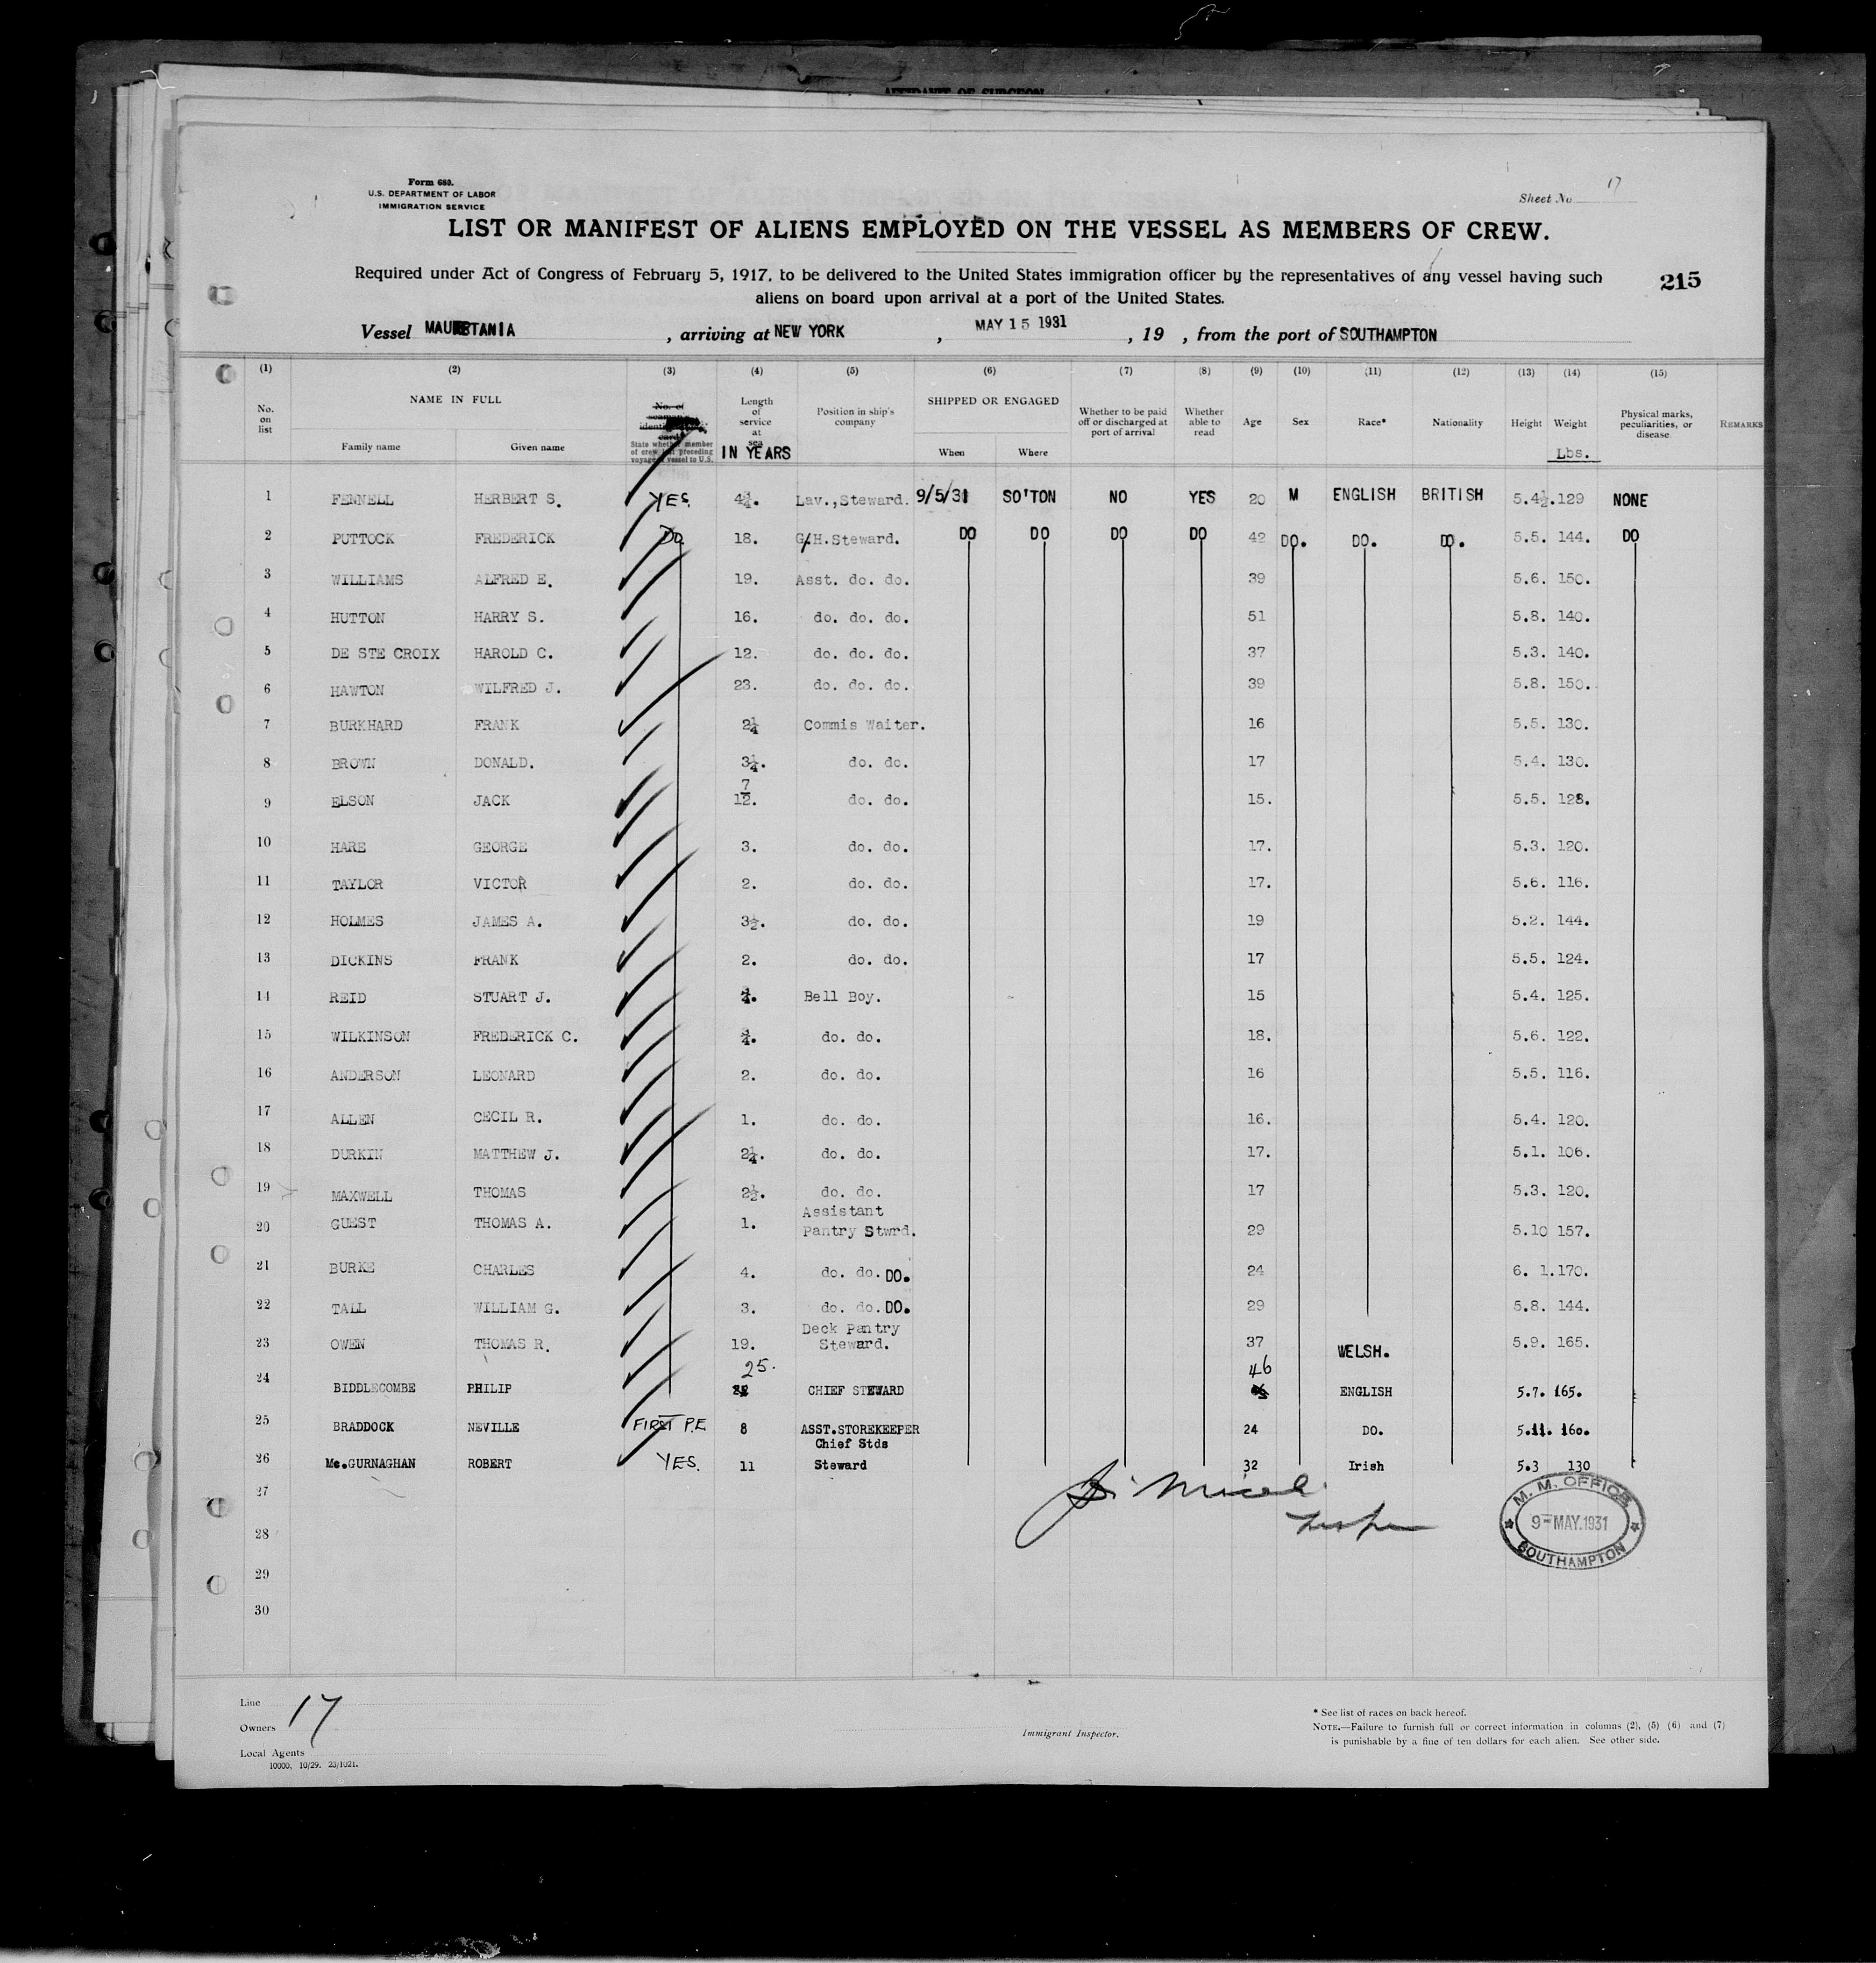 AFFIDAVIT OF SURGEON
Form 680.
U.S. DEPARTMENT OF LABOR
IMMIGRATION SERVICE
Sheet No 17
LIST OR MANIFEST OF ALIENS EMPLOYED ON THE VESSEL AS MEMBERS OF CREW.
Required under Act of Congress of February 5, 1917, to be delivered to the United States immigration officer by the representatives of any vessel having such
aliens on board upon arrival at a port of the United States.
215
Vessel MAURETANIA , arriving at NEW YORK , MAY 15 1931 , 19 , from the port of SOUTHAMPTON
(1) (2) (3) (4) (5) (6) (7) (8) (9) (10) (11) (12) (13) (14) (15)
No. on list NAME IN FULL Family name Given name No. of seaman's identification card State whether member of crew last preceding voyage of vessel to U.S. Length of service at sea IN YEARS Position in ship's company SHIPPED OR ENGAGED When Where Whether to be paid off or discharged at port of arrival Whether able to read Age Sex Race* Nationality Height Weight Lbs. Physical marks, peculiarities, or disease REMARKS
1 FENNELL HERBERT S. YES. 4¼. Lav.,Steward. 9/5/31 SO'TON NO YES 20 M ENGLISH BRITISH 5.4½. 129 NONE
2 PUTTOCK FREDERICK Do 18. G/H.Steward. DO DO DO DO 42 DO. DO. DO. 5.5. 144. DO
3 WILLIAMS ALFRED E. 19. Asst. do. do. 39 5.6. 150.
4 HUTTON HARRY S. 16. do. do. do. 51 5.8. 140.
5 DE STE CROIX HAROLD C. 12. do. do. do. 37 5.3. 140.
6 HAWTON WILFRED J. 23. do. do. do. 39 5.8. 150.
7 BURKHARD FRANK 2¼ Commis Waiter. 16 5.5. 130.
8 BROWN DONALD. 3¼. do. do. 17 5.4. 130.
9 ELSON JACK 7/12. do. do. 15. 5.5. 128.
10 HARE GEORGE 3. do. do. 17. 5.3. 120.
11 TAYLOR VICTOR 2. do. do. 17. 5.6. 116.
12 HOLMES JAMES A. 3½. do. do. 19 5.2. 144.
13 DICKINS FRANK 2. do. do. 17 5.5. 124.
14 REID STUART J. Bell Boy. 15 5.4. 125.
15 WILKINSON FREDERICK C. do. do. 18. 5.6. 122.
16 ANDERSON LEONARD 2. do. do. 16 5.5. 116.
17 ALLEN CECIL R. 1. do. do. 16. 5.4. 120.
18 DURKIN MATTHEW J. 2¼. do. do. 17. 5.1. 106.
19 MAXWELL THOMAS 2½. do. do. 17 5.3. 120.
20 GUEST THOMAS A. 1. Assistant Pantry Stwrd. 29 5.10 157.
21 BURKE CHARLES 4. do. do. DO. 24 6. 1. 170.
22 TALL WILLIAM G. 3. do. do. DO. 29 5.8. 144.
23 OWEN THOMAS R. 19. Deck Pantry Steward. 37 WELSH. 5.9. 165.
24 BIDDLECOMBE PHILIP 25. CHIEF STEWARD 46 ENGLISH 5.7. 165.
25 BRADDOCK NEVILLE FIRST P.E 8 ASST.STOREKEEPER 24 DO. 5.11. 160.
26 Mc.GURNAGHAN ROBERT YES. 11 Chief Stds Steward 32 Irish 5.3 130
27
28
29
30
M. M. OFFICE
9-MAY.1931
SOUTHAMPTON
Line
Owners 17
Local Agents
10000, 10/29. 23/1021.
Immigrant Inspector.
* See list of races on back hereof.
NOTE.—Failure to furnish full or correct information in columns (2), (5) (6) and (7)
is punishable by a fine of ten dollars for each alien. See other side.